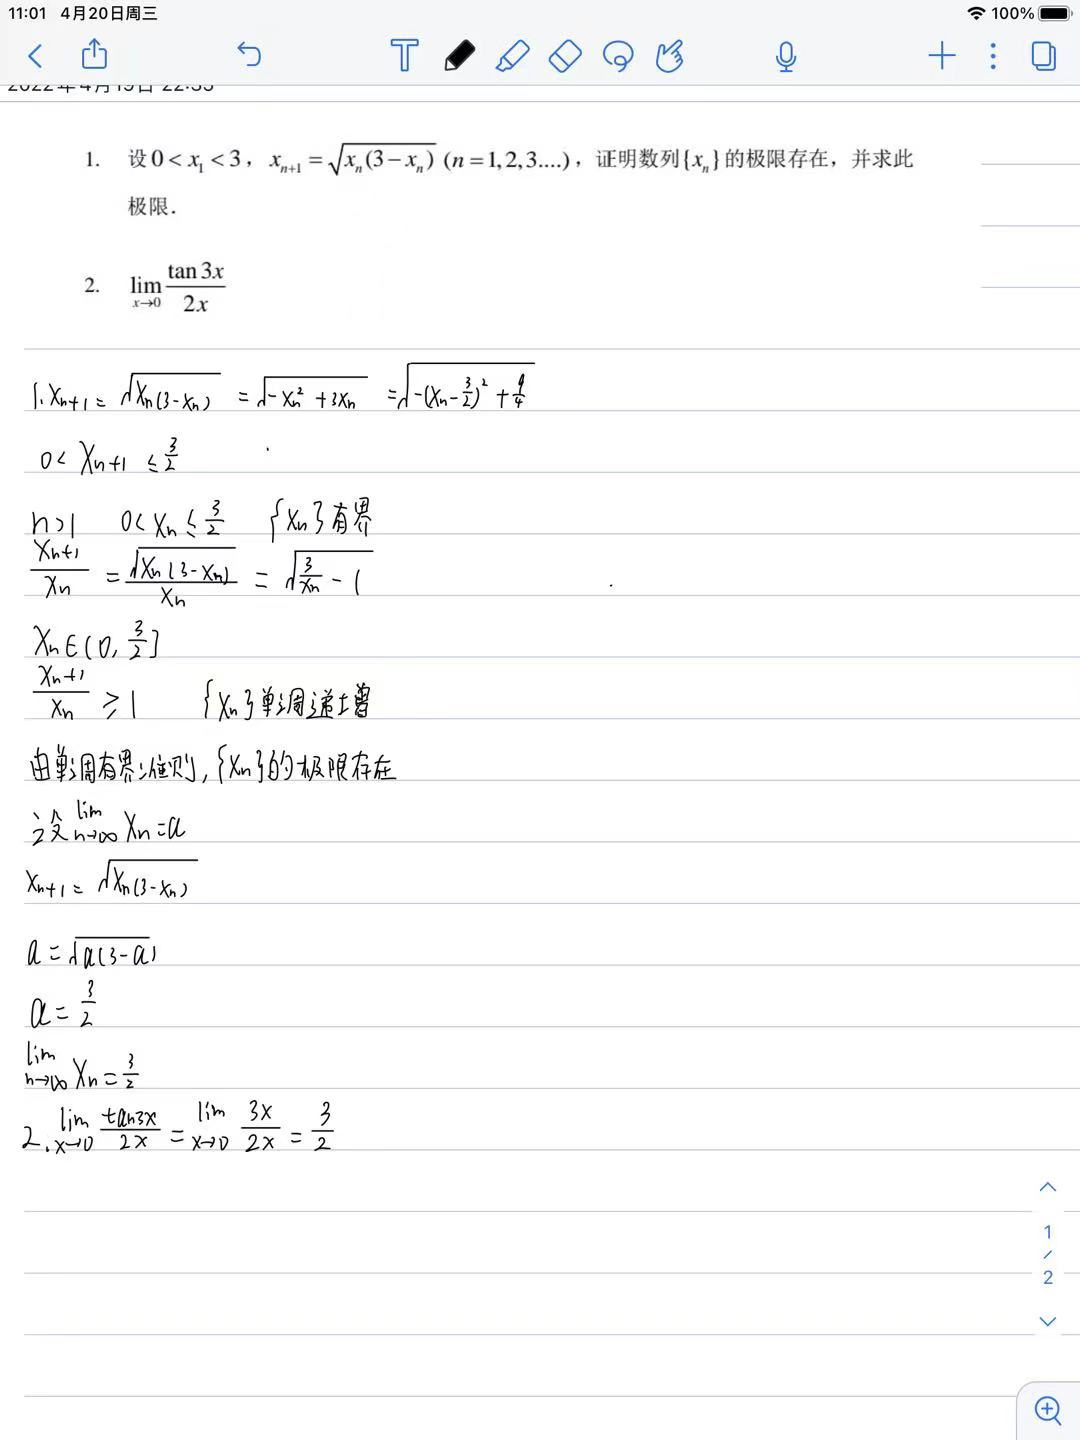 11:01 4月20日周三
100%
2022年4月19日 22:35
1. 设0 < x₁ < 3，xₙ₊₁ = √(xₙ(3−xₙ)) (n = 1,2,3....)，证明数列{xₙ}的极限存在，并求此
极限．
2. lim_{x→0} tan 3x / 2x
1. xₙ₊₁ = √(xₙ(3-xₙ)) = √(-xₙ² + 3xₙ) = √(-(xₙ-3/2)² + 9/4)
0 < xₙ₊₁ ≤ 3/2
n>1 0< xₙ ≤ 3/2 {xₙ}有界
xₙ₊₁/xₙ = √(xₙ(3-xₙ))/xₙ = √(3/xₙ - 1)
xₙ∈(0, 3/2]
xₙ₊₁/xₙ ≥ 1 {xₙ}单调递增
由单调有界准则, {xₙ}的极限存在
设 lim_{n→∞} xₙ = a
xₙ₊₁ = √(xₙ(3-xₙ))
a = √(a(3-a))
a = 3/2
lim_{n→∞} xₙ = 3/2
2. lim_{x→0} tan3x/2x = lim_{x→0} 3x/2x = 3/2
1
/
2